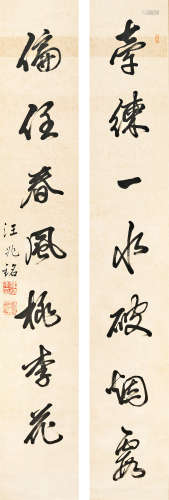 牵练一水破烟霞
偏任春风桃李花
汪兆铭